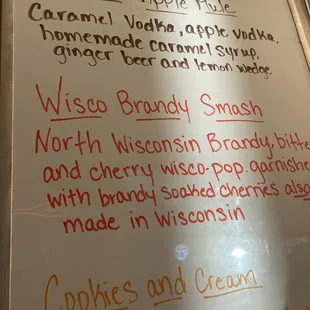 Apple Mule
Caramel Vodka, apple vodka,
homemade caramel syrup,
ginger beer and lemon wedge
Wisco Brandy Smash
North Wisconsin Brandy, bitte
and cherry wisco-pop. garnishe
with brandy soaked cherries also
made in Wisconsin
Cookies and Cream